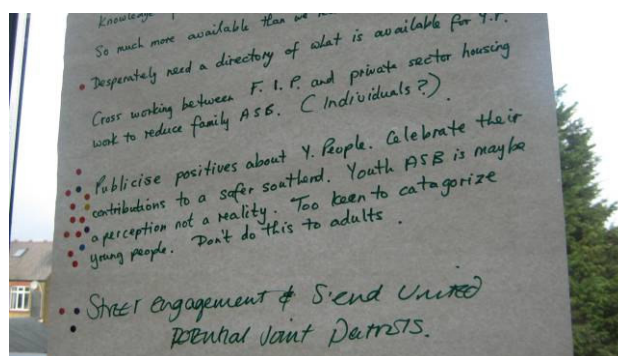 Knowledge
So much more available than we
Desperately need a directory of what is available for Y.P.
Cross working between F.I.P. and private sector housing
work to reduce family ASB. (Individuals?)
Publicise positives about Y. People. Celebrate their
contributions to a safer southend. Youth ASB is maybe
a perception not a reality. Too keen to catagorize
young people. Don't do this to adults.
Street engagement & S'end United
potential Joint Patrols.